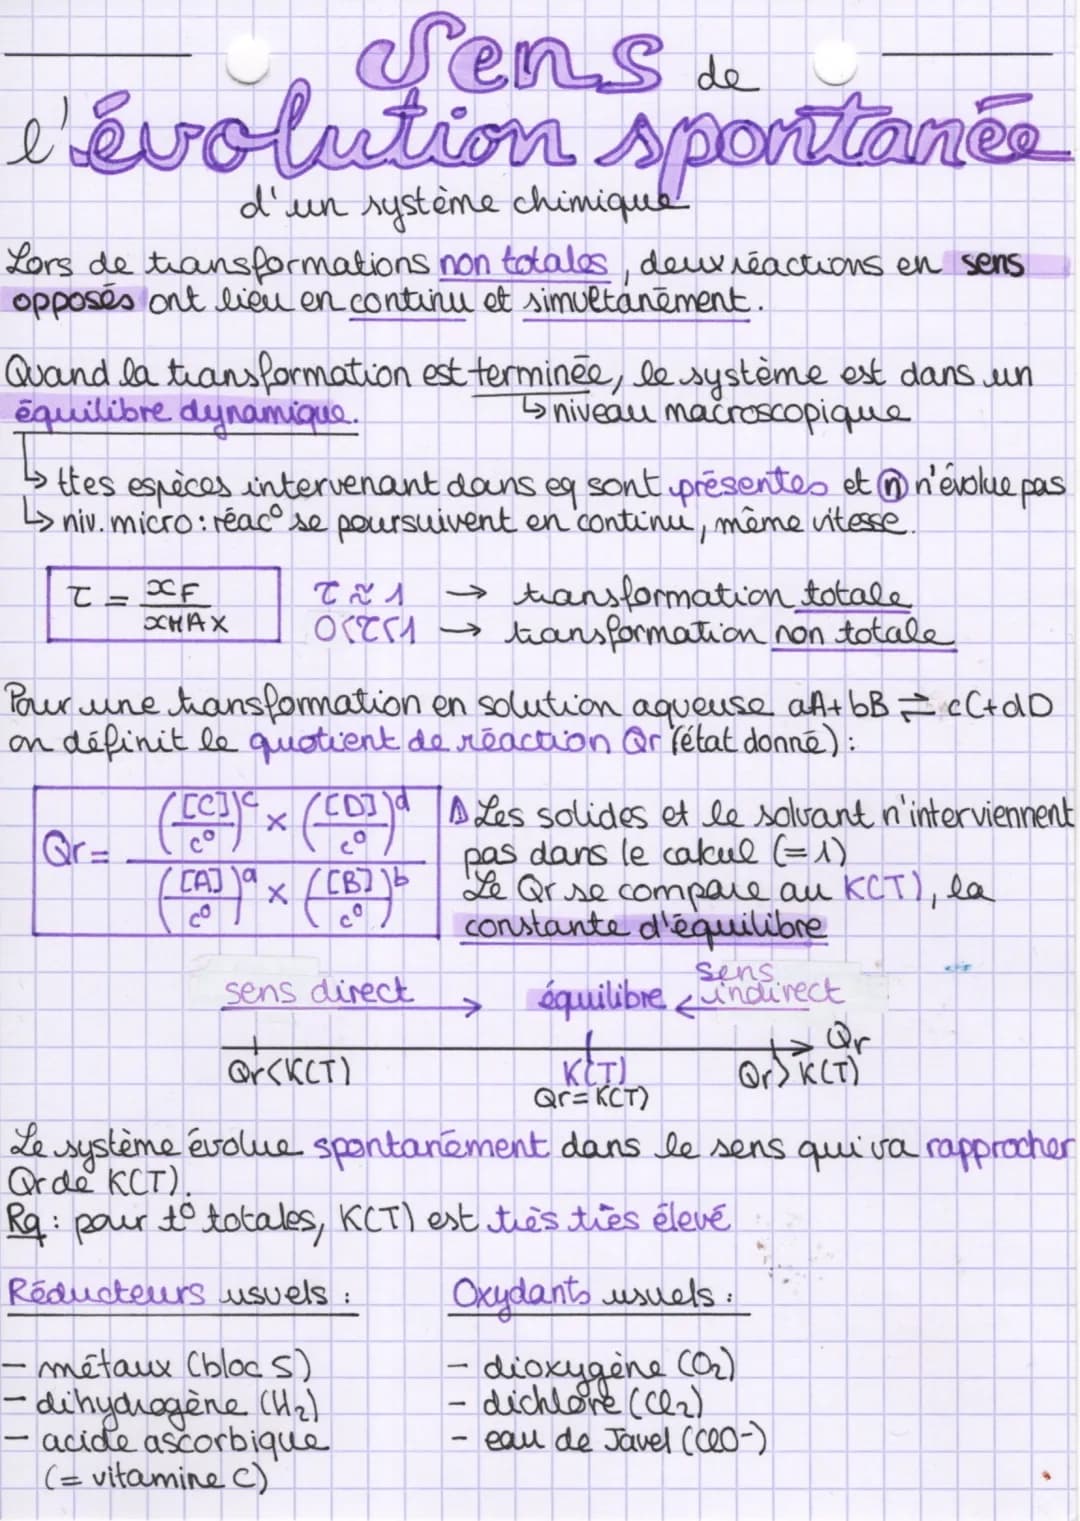 Sens de
l'évolution spontanée
d'un système chimique
Lors de transformations non totales, deux réactions en sens
opposés ont lieu en continu et simultanément.
Quand la transformation est terminée, le système est dans un
équilibre dynamique. ↳ niveau macroscopique
↳ ttes espèces intervenant dans eq sont présentes et n n'évolue pas
↳ niv. micro : réac° se poursuivent en continu, même vitesse.
τ = xF / xMAX
τ ≈ 1 → transformation totale
0<τ<1 → transformation non totale
Pour une transformation en solution aqueuse aA + bB ⇌ cC + dD
on définit le quotient de réaction Qr (état donné) :
Qr = (([C]/c°)^c × ([D]/c°)^d) / (([A]/c°)^a × ([B]/c°)^b)
⚠ Les solides et le solvant n'interviennent
pas dans le calcul (=1)
Le Qr se compare au K(T), la
constante d'équilibre
sens direct → équilibre ← sens indirect
Qr
Qr<K(T) K(T) Qr>K(T)
Qr=K(T)
Le système évolue spontanément dans le sens qui va rapprocher
Qr de K(T).
Rq : pour t° totales, K(T) est très très élevé
Réducteurs usuels :
- métaux (bloc S)
- dihydrogène (H₂)
- acide ascorbique
(= vitamine C)
Oxydants usuels :
- dioxygène (O₂)
- dichlore (Cl₂)
- eau de Javel (ClO-)